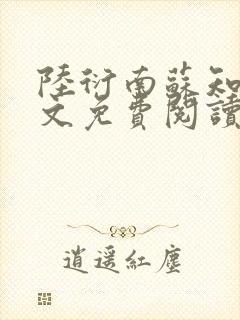 陸衍南蘇知
文免費閱讀
逍遥紅塵